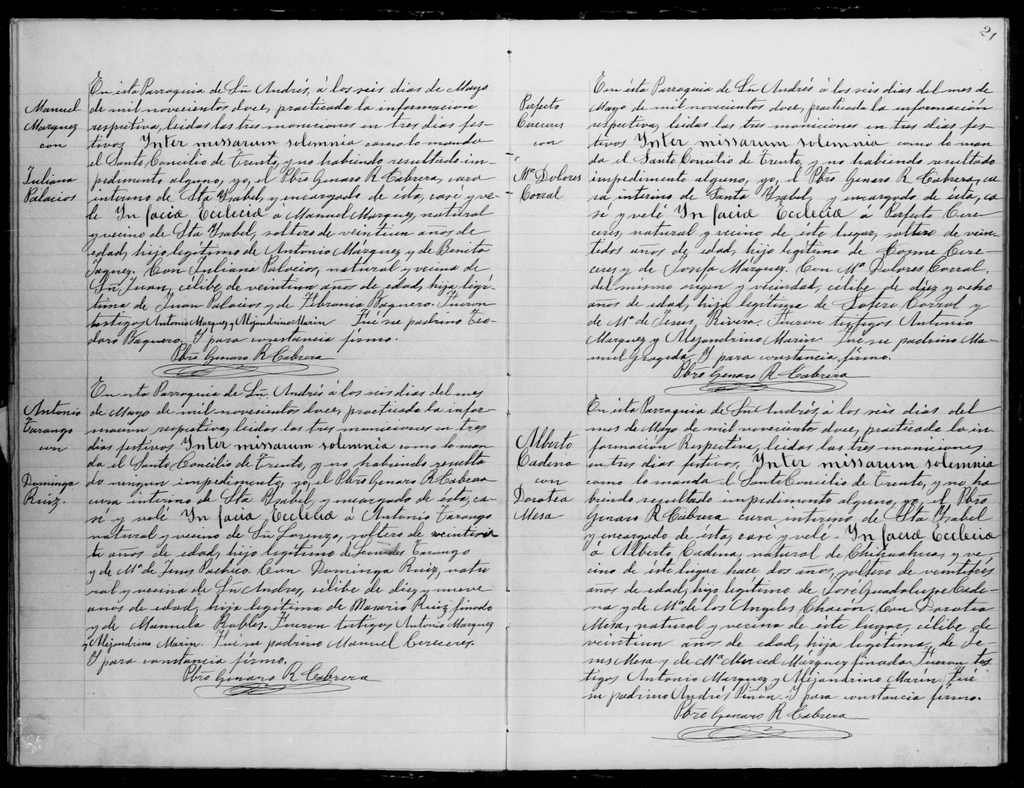 Manuel
Marquez
con
Juliana
Palacios
En ésta Parroquia de Sn Andrés, á los seis dias de Mayo
de mil novecientos doce, practicada la informacion
respectiva, leidas las tres moniciones en tres dias fes-
tivos Inter missarum solemnia como lo manda
el Santo Concilio de Trento, y no habiendo resultado im-
pedimento alguno, yo, el Pbro Genaro R. Cabrera, cura
interino de Sta Ysabel, y encargado de ésta, casé y ve-
lé In facia Ecclecia á Manuel Marquez, natural
y vecino de Sta Ysabel, soltero de veintiun años de
edad, hijo legitimo de Antonio Márquez y de Benita
Jaquez. Con Juliana Palacios, natural y vecina de
Sn Juan, célibe de veintiun años de edad, hija legí-
tima de Juan Palacios y de Baquero. Fueron
testigos Antonio Marquez y Alejandrino Marin Fué su padrino Teo-
doro Baquero. Y para constancia firmo.
Pbro Genaro R Cabrera
Antonio
Tarango
con
Dominga
Ruiz.
En esta Parroquia de Sn Andrés á los seis dias del mes
de Mayo de mil novecientos doce, practicada la infor-
macion respectiva, leidas las tres moniciones en tres
dias festivos Inter missarum solemnia como lo man-
da el Santo Concilio de Trento, y no habiendo resulta
do ningun impedimento, yó, el Pbro Genaro R Cabrera
cura interino de Sta Ysabel y encargado de ésta, ca-
sé y velé In facia Ecclecia á Antonio Tarango
natural y vecino de Sn Lorenzo, soltero de
años de edad, hijo legitimo de Tarango
y de Ma de Jesus Pacheco. Con Dominga Ruiz, natu
ral y vecina de Sn Andres, célibe de diez y nueve
años de edad, hija legitima de Macario Ruiz finado
y de Manuela Robles. Fueron testigos Antonio Marquez
y Alejandrino Marin. Fué su padrino Manuel Cereceres.
Y para constancia firmo.
Pbro Genaro R Cabrera
21
Perfecto
Cereceres
con
Ma Dolores
Corral
En ésta Parroquia de Sn Andrés á los seis dias del mes de
Mayo de mil novecientos doce, practicada la información
respectiva, leidas las tres moniciones en tres dias fes-
tivos Inter missarum solemnia como lo man-
da el Santo Concilio de Trento, y no habiendo resultado
impedimento alguno, yo, el Pbro Genaro R Cabrera, cu-
ra, interino de Santa Ysabel y encargado de ésta, ca-
sé y velé In facia Ecclecia á Perfecto Cere-
ceres, natural y vecino de este lugar, soltero de vein-
tidos años de edad, hijo legitimo de Cosme Cere-
ceres y de Josefa Márquez. Con Ma Dolores Corral.
del mismo origen y vecindad, célibe de diez y ocho
años de edad, hija legitima de Sotero Corral y
de Ma de Jesus Rivera. Fueron testigos Antonio
Marquez y Alejandrino Marin. Fué su padrino Ma-
nuel Grageda. Y para constancia firmo.
Pbro Genaro R Cabrera
Alberto
Cadena
con
Dorotea
Mesa
En ésta Parroquia de Sn Andrés, á los seis dias del
mes de Mayo de mil novecientos doce, practicada la in-
formación Respectiva, leidas las tres moniciones
en tres dias festivos, Inter missarum solemnia
como lo manda el Santo Concilio de Trento, y no ha
biendo resultado impedimento alguno, yo, el Pbro
Genaro R Cabrera cura, interino, de Sta Ysabel
y encargado de ésta, casé y velé In facia Ecclecia
á Alberto Cadena, natural de Chihuahua, y ve-
cino de éste lugar hace dos años, soltero de veintitrés
años de edad, hijo legitimo de José Guadalupe Cade-
na y de Ma de los Angeles Chacón. Con Dorotea
Mesa, natural y vecina de este lugar, célibe de
veintiun años de edad, hija legitima, de Je-
sus Mesa y de Ma Merced Marquez finada. Fueron tes
tigos Antonio Marquez y Alejandrino Marin, Fué
su padrino Andrés. Y para constancia firmo.
Pbro Genaro R Cabrera